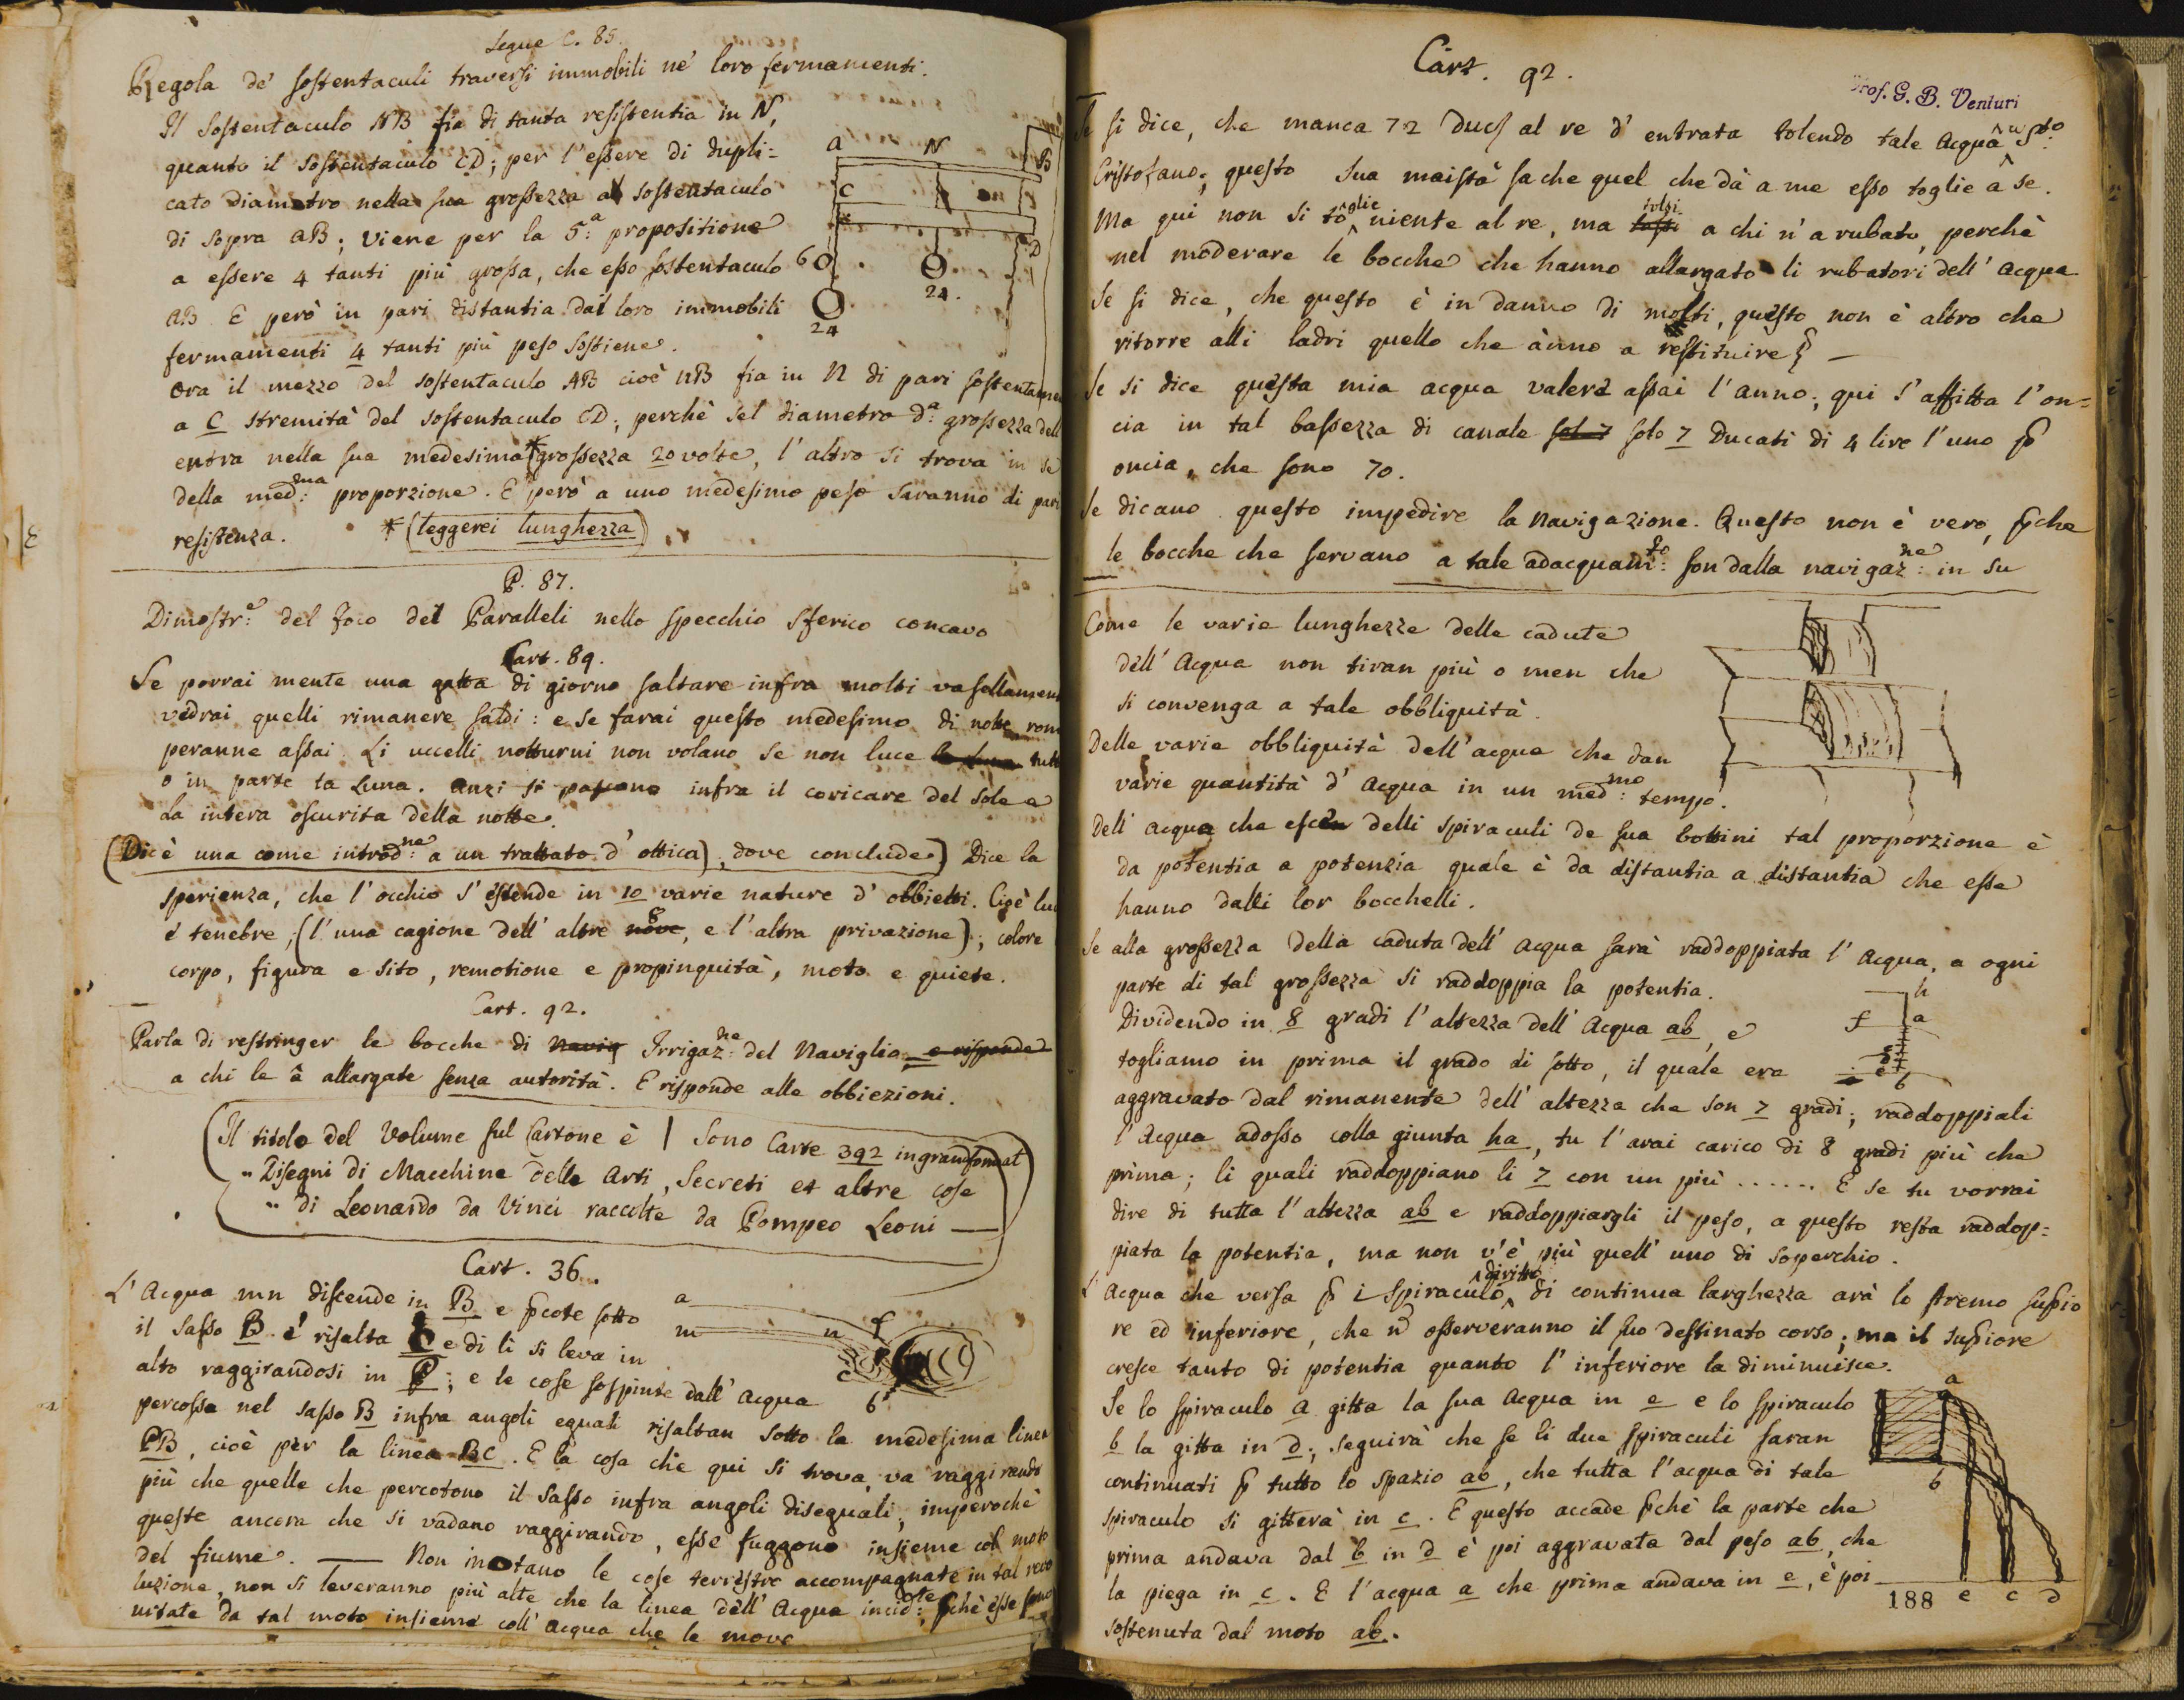 Segue C. 85.
Regola de' sostentaculi traversi immobili ne' loro fermamenti.
Il Sostentaculo NB fia di tanta resistentia in N,
quanto il sostentaculo CD; per l'essere di dupli=
cato diametro nella sua grossezza al sostentaculo
di sopra aB; viene per la 5.a propositione
a essere 4 tanti più grossa, che esso sostentaculo
AB. E però in pari distantia dai loro immobili
fermamenti 4 tanti più peso sostiene.
Ora il mezzo del sostentaculo AB cioè nB fia in N di pari sostentamen
a C stremità del sostentaculo CD; perchè sel diametro d.a grossezza dell
entra nella sua medesima * grossezza 20 volte, l'altro si trova in se
della med:ma proporzione. E però a uno medesimo peso saranno di pari
resistenza. * (leggerei lunghezza)
a N B
C D
6 24.
24
P. 87.
Dimostr:e del foco dei Paralleli nello specchio sferico concavo
Cart. 89.
Se porrai mente una gatta di giorno saltare infra molti vasellamen
vedrai quelli rimanere saldi: e se farai questo medesimo di notte rom
peranne assai. Li uccelli notturni non volano se non luce la Luna tutt
o in parte la Luna. anzi si pascono infra il coricare del sole e
La intera oscurita della notte.
(Dic'è una come introd:ne a un trattato d'ottica), dove conclude) Dice la
sperienza, che l'occhio s'estende in 10 varie nature d'obbietti. Cioè luc
e tenebre, (l'una cagione dell'altre nove 8, e l'altra privazione); colore
corpo, figura e sito, remotione e propinquità, moto e quiete.
Cart. 92.
Parla di restringer le bocche di Navig Irrigaz:ne del Naviglio, e risponde
a chi le â allargate senza autorità. E risponde alle obbiezioni.
(Il titolo del Volume sul Cartone è | Sono Carte 392 in grandformat
„ Disegni di Macchine delle Arti, Secreti et altre cose
„ di Leonardo da Vinci raccolte da Pompeo Leoni —
Cart. 36.
L'Acqua mn discende in B e pcote sotto
il sasso B e' risalta C e di li si leva in
alto raggirandosi in P; e le cose sospinte dall'acqua
percossa nel sasso B infra angoli eguali risaltan sotto la medesima linea
PB, cioè per la linea BC. E la cosa che qui si trova va raggirando
più che quelle che percotono il sasso infra angoli diseguali; imperochè
queste ancora che si vadano raggirando, esse fuggono insieme col moto
del fiume. — Non inotano le cose terrestre accompagnate in tal revo
luzione, non si leveranno più alte che la linea dell'Acqua incid:nte; pchè esse sono
uitate da tal moto insieme coll'acqua che le move
a f
m n
c
b
Cart. 92.
Prof. G. B. Venturi
Se si dice, che manca 72 Duc. al re d'entrata tolendo tale acqua a S.to
Cristofano; questo sua maistà sa che quel che dà a me esso toglie a se.
Ma qui non si toglie niente al re, ma tolsi a chi n'a rubato, perchè
nel moderare le bocche che hanno allargato li rubatori dell'acqua
Se si dice, che questo è in danno di molti, questo non è altro che
ritorre alli ladri quello che ànno a restituire —
Se si dice questa mia acqua valere assai l'anno; qui s'affitta l'on=
cia in tal bassezza di canale sol 7 solo 7 Ducati di 4 lire l'uno p
oncia, che sono 70.
Se dicano questo impedire la Navigazione. Questo non è vero, pche
le bocche che servano a tale adacquam:to son dalla navigaz:ne in su
Come le varie lunghezze delle cadute
dell'Acqua non tiran più o men che
si convenga a tale obbliquità.
Delle varie obbliquità dell'acqua che dan
varie quantità d'Acqua in un med:mo tempo.
Dell'acqua che escen delli spiraculi de sua bottini tal proporzione è
da potentia a potenzia quale è da distantia a distantia che esse
hanno dalli lor bocchelli.
Se alla grossezza della caduta dell'acqua sarà raddoppiata l'Acqua, a ogni
parte di tal grossezza si raddoppia la potentia.
Dividendo in 8 gradi l'altezza dell'Acqua ab, e
togliamo in prima il grado di sotto, il quale era
aggravato dal rimanente dell'altezza che son 7 gradi; raddoppiali
l'Acqua adosso colla giunta ha, tu l'arai carico di 8 gradi più che
prima; li quali raddoppiano li 7 con un più ...... E se tu vorrai
dire di tutta l'altezza ab e raddoppiargli il peso, a questo resta raddop=
piata la potentia, ma non v'è più quell'uno di soperchio.
h
f a
e b
L'acqua che versa p i spiraculo diritto di continua larghezza arà lo stremo supio
re ed inferiore, che n osserveranno il suo destinato corso; ma il supiore
cresce tanto di potentia quanto l'inferiore la diminuisce.
Se lo spiraculo a gitta la sua acqua in e e lo spiraculo
b la gitta in d; seguirà che se li due spiraculi saran
continuati p tutto lo spazio ab, che tutta l'acqua di tale
spiraculo si gitterà in c. E questo accade pchè la parte che
prima andava dal b in d è poi aggravata dal peso ab, che
la piega in c. E l'acqua a che prima andava in e, è poi
sostenuta dal moto ab.
a
b
188 e c d